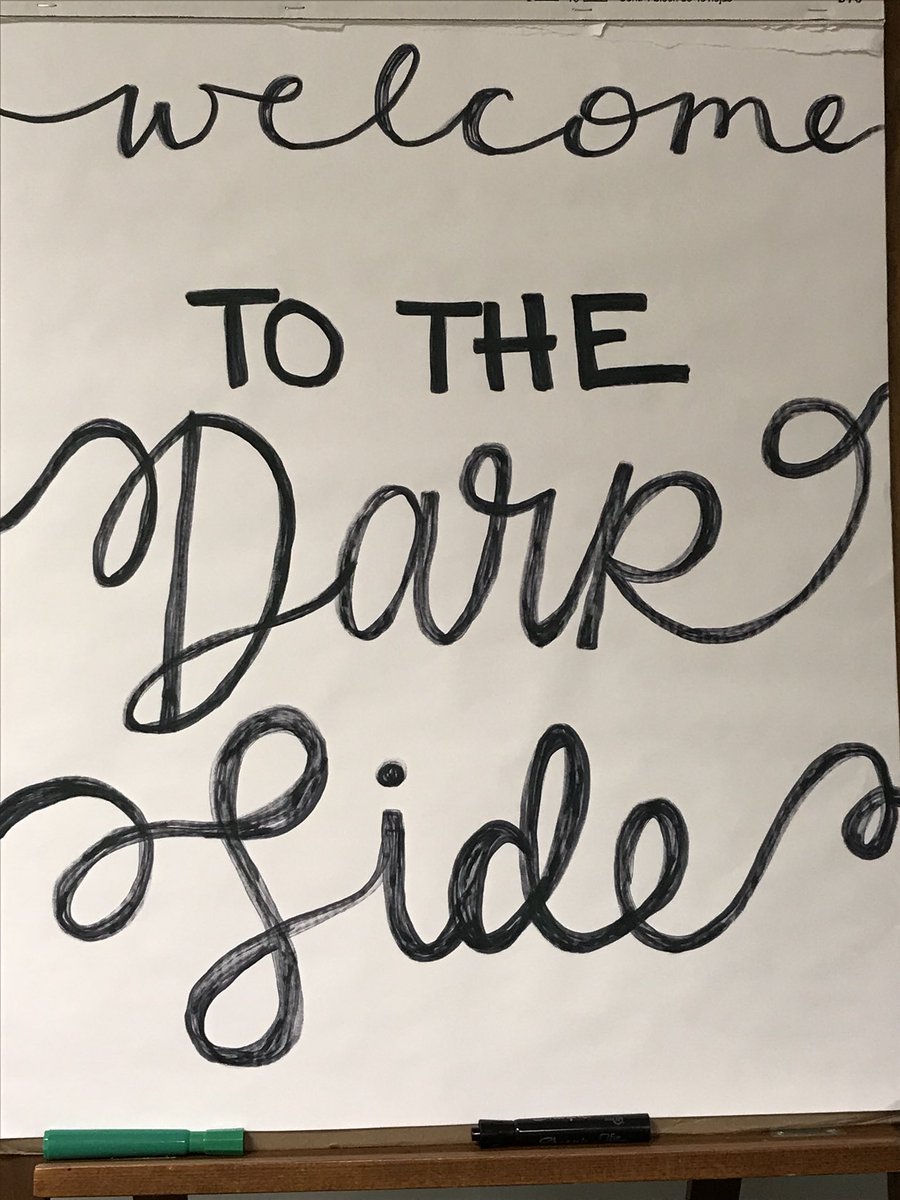 welcome
TO THE
Dark
Side